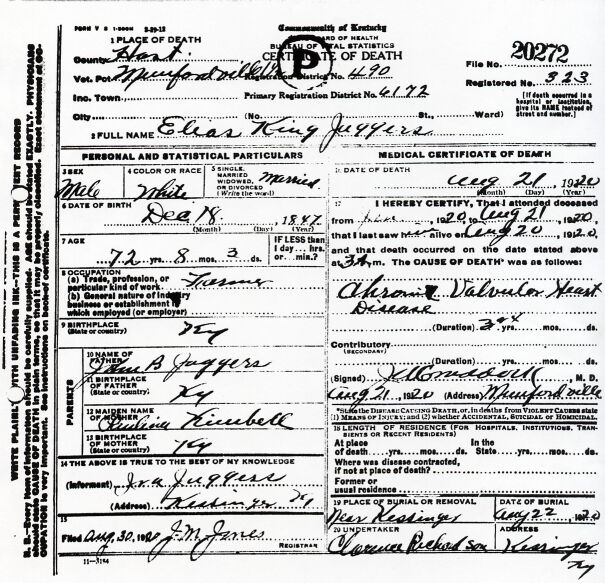 FORM V S 1-200M 2-29-12
Commonwealth of Kentucky
BOARD OF HEALTH
BUREAU OF VITAL STATISTICS
CERTIFICATE OF DEATH
P
1 PLACE OF DEATH
County Hart
Vot. Pct Munfordville Registration District No. 490
File No. 20272
Registered No. 323
Inc. Town Primary Registration District No. 6172
[If death occurred in a hospital or institution, give its NAME instead of street and number.]
City (No. St., Ward)
2 FULL NAME Elias King Jaggers
PERSONAL AND STATISTICAL PARTICULARS
3 SEX Male
4 COLOR OR RACE White
5 SINGLE, MARRIED WIDOWED, OR DIVORCED (Write the word) Married
6 DATE OF BIRTH Dec 18, 1847
(Month) (Day) (Year)
7 AGE 72 yrs. 8 mos. 3 ds.
IF LESS than 1 day... hrs. or... min.?
8 OCCUPATION
(a) Trade, profession, or particular kind of work Farmer
(b) General nature of industry business or establishment which employed (or employer)
9 BIRTHPLACE (State or country) Ky
PARENTS
10 NAME OF FATHER John B Jaggers
11 BIRTHPLACE OF FATHER (State or country) Ky
12 MAIDEN NAME OF MOTHER Kimbell
13 BIRTHPLACE OF MOTHER (State or country) Ky
14 THE ABOVE IS TRUE TO THE BEST OF MY KNOWLEDGE
(Informant) Ira Jaggers
(Address) Kessinger Ky
15
Filed Aug. 30, 1920 J. M. Jones
REGISTRAR
11-3184
MEDICAL CERTIFICATE OF DEATH
DATE OF DEATH Aug 21, 1920
(Month) (Day) (Year)
17 I HEREBY CERTIFY, That I attended deceased
from , 1920, to Aug 21, 1920,
that I last saw h alive on Aug 20, 1920,
and that death occurred on the date stated above
at 3 A m. The CAUSE OF DEATH* was as follows:
Chronic Valvular Heart
Disease
(Duration) yrs. mos. ds.
Contributory
(SECONDARY)
(Duration) yrs. mos. ds.
(Signed) , M. D.
Aug 21, 1920 (Address) Munfordville
*State the DISEASE CAUSING DEATH, or, in deaths from VIOLENT CAUSES state (1) MEANS OF INJURY; and (2) whether ACCIDENTAL, SUICIDAL, or HOMICIDAL.
18 LENGTH OF RESIDENCE (FOR HOSPITALS, INSTITUTIONS, TRANSIENTS OR RECENT RESIDENTS)
At place of death yrs. mos. ds. In the State yrs. mos. ds.
Where was disease contracted, if not at place of death?
Former or usual residence
19 PLACE OF BURIAL OR REMOVAL Near Kessinger
DATE OF BURIAL Aug 22, 1920
20 UNDERTAKER Clarence Richardson
ADDRESS Kessinger
Ky
WRITE PLAINLY WITH UNFADING INK—THIS IS A PERMANENT RECORD
N. B.—Every item of information should be carefully supplied. AGE should be stated EXACTLY. PHYSICIANS should state CAUSE OF DEATH in plain terms, so that it may be properly classified. Exact statement of OCCUPATION is very important. See instructions on back of certificate.